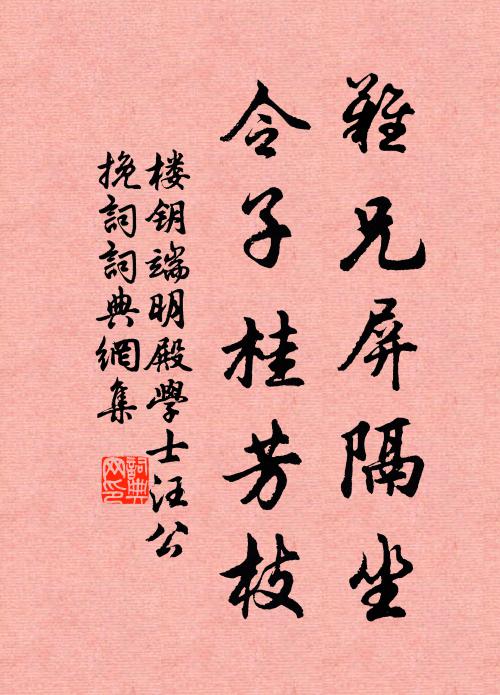 難兄屏隔坐
令子桂芳枝
楼钥端明殿學士汪公
挽詞詞典網集
詞典网印